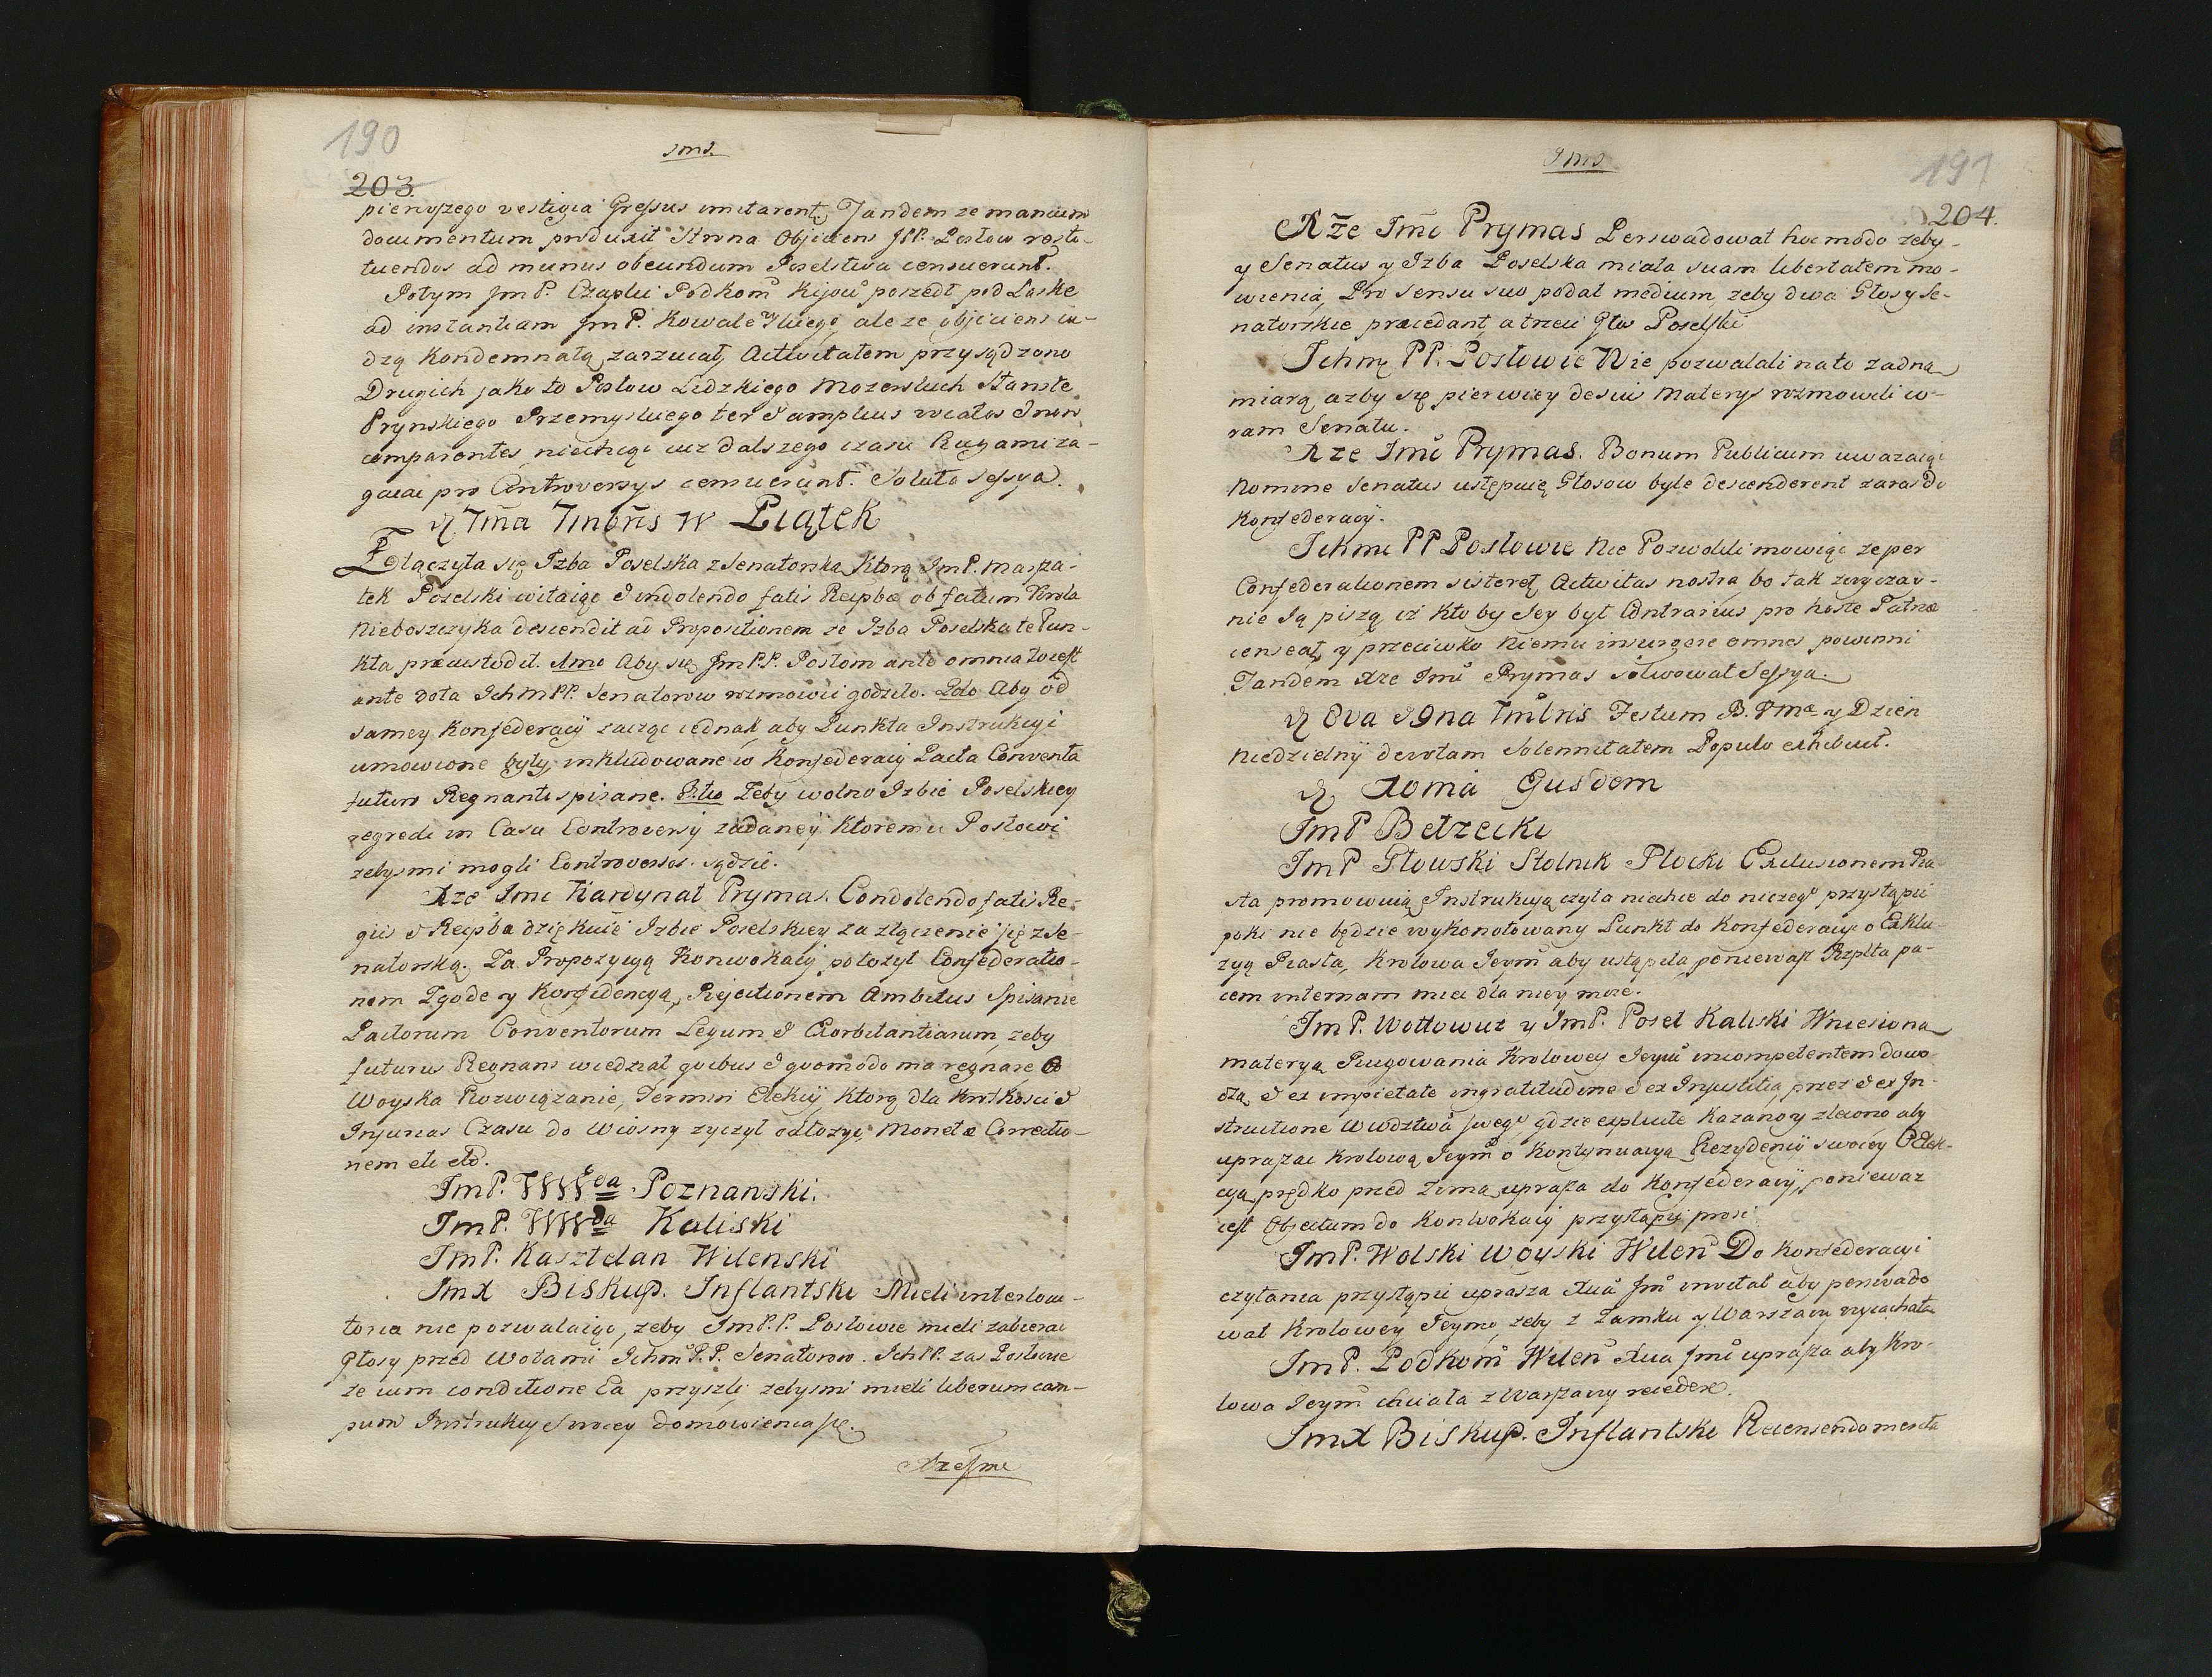 190
jms.
203.
pierwszego vestigia Gressus imitarent, Tandem ze mancum
documentum produxit Strona Objiciens JPP. Posłow resti-
tuendos ad munus obeundum Poselstwa censuerunt.
Potym JmP. Czaplic Podkom Kijow poszedł pod Laskę
ad instantiam JmP. Kowalewskiego, ale ze objiciens cu-
dzą Kondemnatą zarzucał, Activitatem przysądzono
Drugich jako to Posłow Lidzkiego Mozerskich Staroste
Prynskiego Przemyskiego ter & amplius
comparentes, niechcąc iuz dalszego czasu Rugami za-
gaiać pro Controversys censuerunt. Soluta Sessya.
d 7ma 7mbris w Piątek
Złączyła się Izba Poselska z Senatorską, Ktorą JmP. Marsza-
łek Poselski witaiąc & indolendo fatis Reipbcæ ob fatum Krola
Nieboszczyka descendit ad Propositionem ze Izba Poselska te Pun-
kta præcustodit. 1mo Aby się JmPP. Posłom ante omnia to iest
ante vota IchmPP. Senatorow rozmowić godziło. 2do Aby od
samey Konfederacÿ zacząc iednak, aby Punkta Instrukcyi
umowione były, inkludowane w Konfederacij Pacta Conventa
futuro Regnanti spisane. 3tio Zeby wolno Izbie Poselskiey
regredi in Casu Controversÿ zadaneÿ Ktoremu Posłowi
zebysmi mogli Controversos sądzić.
Xze Imc Kardynał Prymas. Condolendo fatis Re-
gis & Reipbæ dziękuie Izbie Poselskiey za złączenie się z Se-
natorską. Za Propozycyą Konwokacij położył Confederatio-
nem Zgodę y Konfidencyą, Rejectionem Ambitus Spisanie
Pactorum Conventorum Legum & Exorbitantiarum, zeby
futurus Regnans wiedział quibus & quomodo ma regnare, O
Woyska Rozwiązanie, Termin Elekcij, Ktorą dla Krotkosci &
Injurias Czasu do Wiosny życzył odłożyć, Monetæ Correctio-
nem etc etc.
JmP. WWda Poznanski.
JmP. WWda Kaliski
JmP. Kasztelan Wilenski
JmX Biskup. Inflantski Mieli interlocu-
toria nie pozwalaiąc, zeby JmP.P. Posłowie mieli zabierac
Głosy przed Wotami Ichm P.P. Senatorow. IchPP. zas Posłowie
ze cum conditione Ea przyszli, zebysmi mieli liberum cam-
pum Instrukcij Swoiey domowienia się.
Xze Jmc
Jms
191
204.
Xże Imc Prymas Perswadował hoc modo zeby-
y Senatus y Izba Poselska miała suam libertatem mo-
wienia, Pro Sensu suo podał medium, zeby dwa Głosy Se-
natorskie præcedant, a trzeci Głos Poselski
Ichm PP. Posłowie Nie pozwalali na to zadną
miarą azby się pierwiey de sui Materys rozmowili co-
ram Senatu.
Xze Imc Prymas. Bonum Publicum uwazaiąc
Nomine Senatus ustępuię Głosow byle descenderent zaras do
Konfederacÿ.
Ichmc PP Posłowie Nie Pozwolili mowiąc ze per
Confederationem sisteret Activitas nostra, bo tak zwyczay-
nie Ją piszą iż Kto by Jey był Contrarius pro hoste Patriæ
censeat, y przeciwko Niemu insurgere omnes powinni
Tandem Xze Imc Prymas solwował Sessya.
d 8va & 9na 7mbris Festum B.Vmæ y Dzien
Niedzielnÿ devotam Solennitatem Populo exhibuit.
d Xoma Ejusdem
JmP Bełzecki
JmP Głowski Stolnik Płocki Exclusionem Pia-
sta promowuią Instrukcyą czyta niechce do niczego przystąpić
poki nie będzie wykonotowany Punkt do Konfederacyi o Exklu-
zyą Piasta, Krolowa Jeym aby ustąpiła, poniewasz Rzplta pa-
cem internam mieć dla niey może.
JmP. Wołłowicz y JmP. Poseł Kaliski Wniesioną
materyą Rugowania Krolowey Jeym incompetentem dowo-
dzą & ex impietate ingratitudine & ex Injustitia, przez & ex In-
structione Wwdztwa swego gdzie explicite Kazano y zlecono aby
upraszac Krolową Jeym o Kontynuacyą Rezydencij swoiey Elek-
cya prędko przed Zimą uprasza do Konfederacÿ, poniewaz
iest Objectum do Konwokacij przystąpić prosi.
JmP. Wolski Woyski Wilen Do Konfederacyi
czytania przystąpić uprasza Xcia Jm invitat aby perswado
wał Krolowey Jeymc, zeby z Zamku y Warszawy wyiachała
JmP. Podkom Wilen Xcia Jmc uprasza aby Kro-
lowa Jeym chciała z Warszawy recedere.
JmX Biskup. Inflantski Recensendo merita